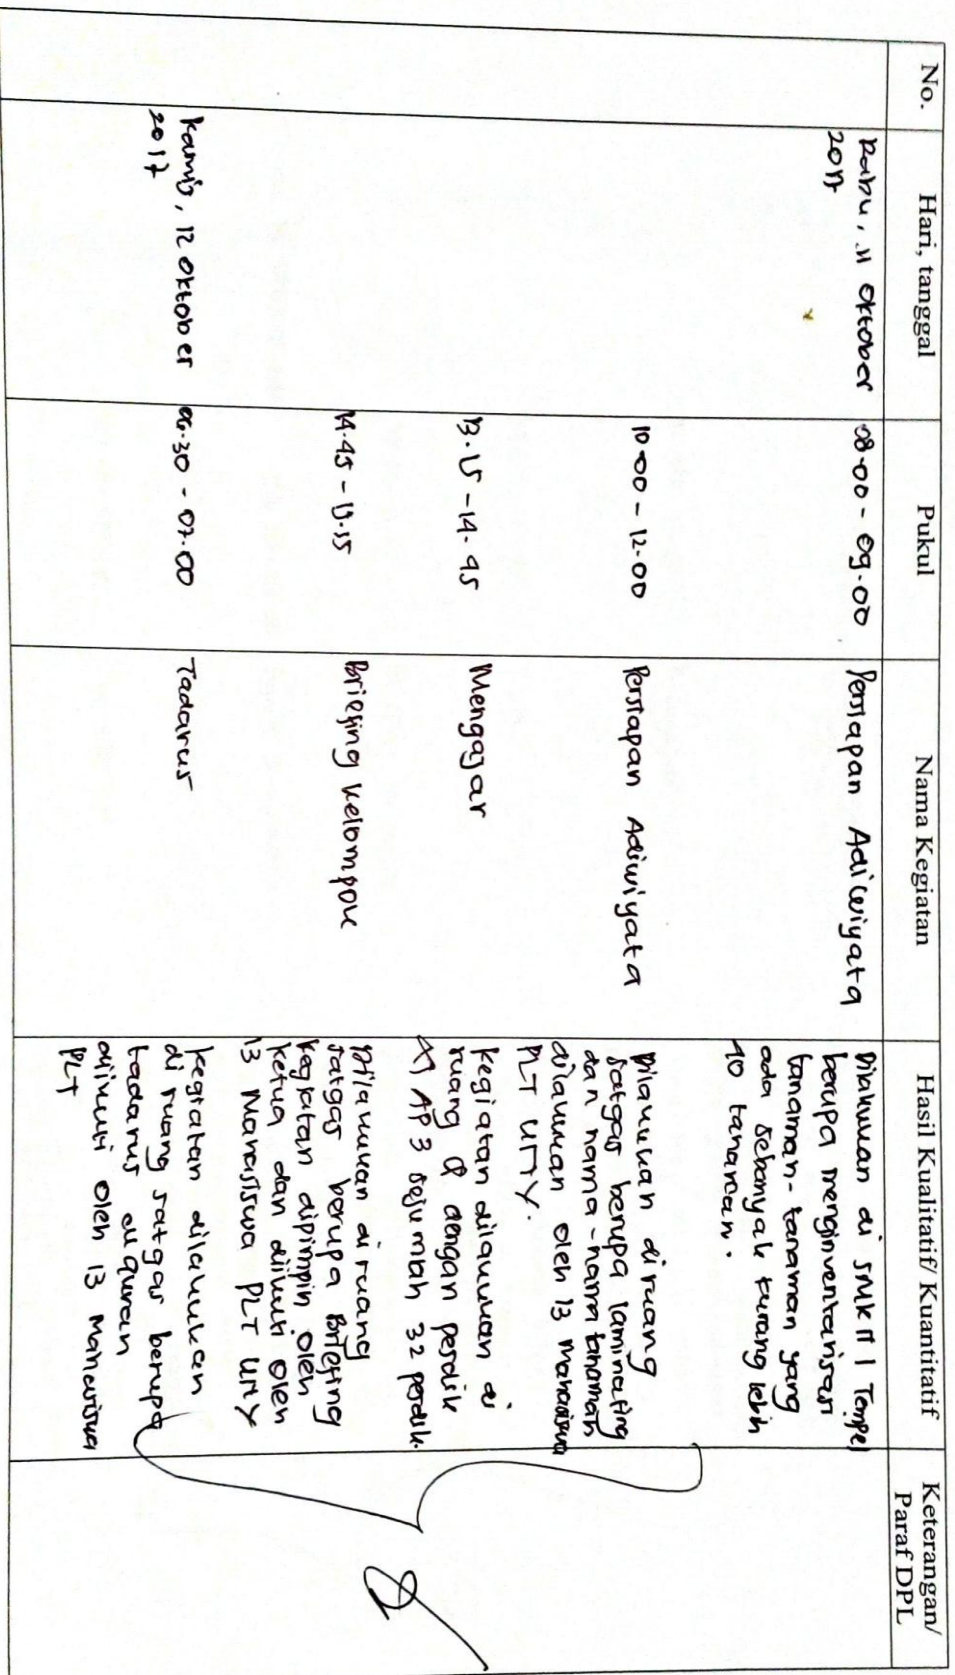 No.
Hari, tanggal
Pukul
Nama Kegiatan
Hasil Kualitatif/ Kuantitatif
Keterangan/
Paraf DPL
Rabu, 11 Oktober
2017
08.00 - 09.00
Persiapan Adiwiyata
Dilakukan di SMK N 1 Tempel
berupa menginventarisasi
tanaman-tanaman yang
ada sebanyak kurang lebih
40 tanaman.
10.00 - 12.00
Persiapan Adiwiyata
Dilakukan di ruang
satgas berupa laminating
dan nama-nama tanaman
dilakukan oleh 13 mahasiswa
PLT UNY.
13.15 - 14.45
Mengajar
Kegiatan dilakukan di
ruang Q dengan perdik
XI AP 3 sejumlah 32 perdik.
14.45 - 15.15
Briefing kelompok
Dilakukan di ruang
satgas berupa Briefing
kegiatan dipimpin oleh
ketua dan diikuti oleh
13 Mahasiswa PLT UNY
Kamis, 12 Oktober
2017
06.30 - 07.00
Tadarus
Kegiatan dilakukan
di ruang satgas berupa
tadarus alquran
diikuti oleh 13 Mahasiswa
PLT